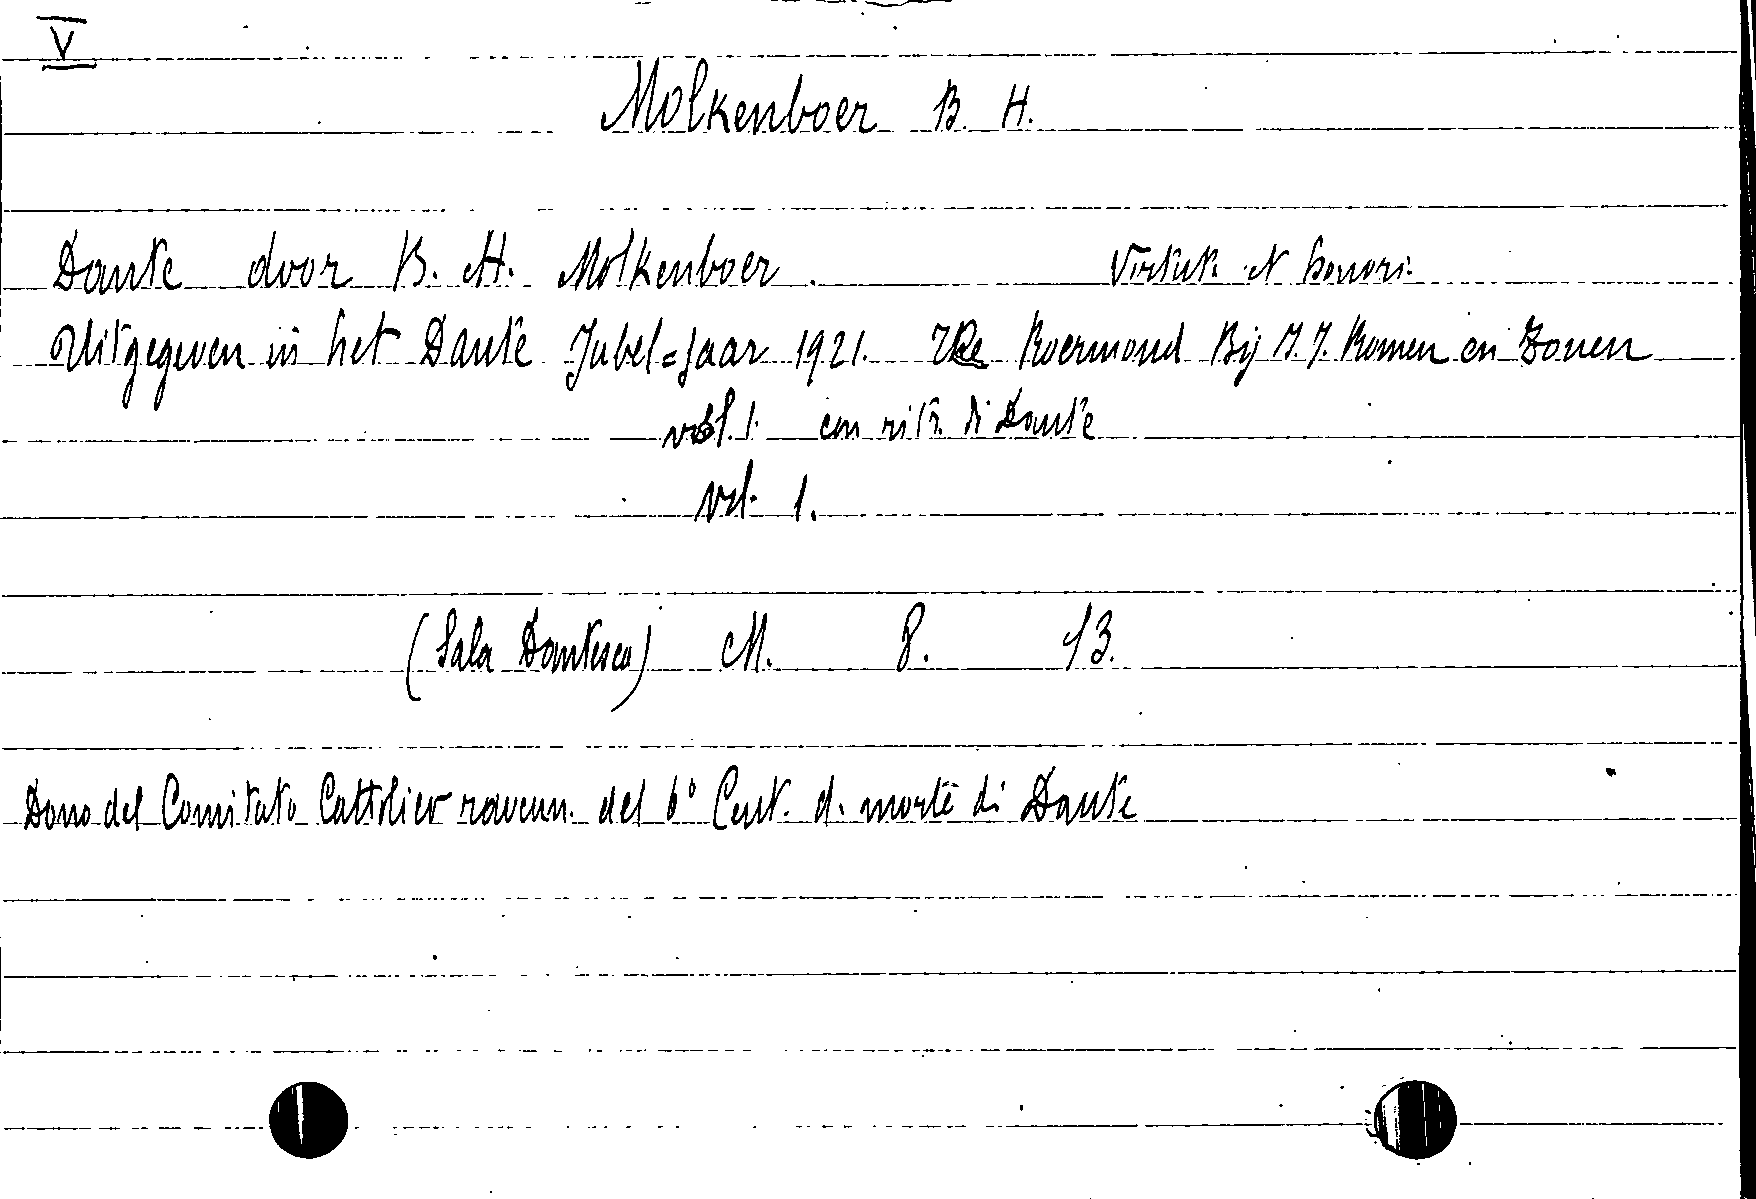 V
Molkenboer B. H.
Dante door B. H. Molkenboer. Virtuti et honori.
Uitgegeven in het Dante Jubel=Jaar 1921. Roermond Bij J. J. Romen en Zonen
vol. 1. con ritr. di Dante
vol. 1.
(Sala Dantesca) M. 8. 13.
Dono del Comitato Cattolico ravenn. del 6° Cent. d. morte di Dante